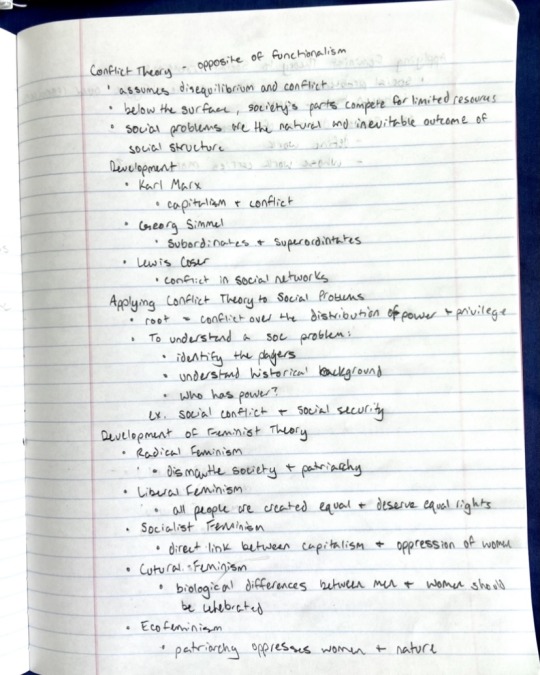 Conflict Theory - opposite of functionalism
• assumes disequilibrium and conflict
• below the surface, society's parts compete for limited resources
• social problems are the natural and inevitable outcome of
social structure
Development
• Karl Marx
• capitalism + conflict
• Georg Simmel
• Subordinates + Superordintates
• Lewis Coser
• conflict in social networks
Applying Conflict Theory to Social Problems
• root = conflict over the distribution of power + privilege
• To understand a soc problem:
• identify the players
• understand historical background
• who has power?
ex. social conflict + social security
Development of Feminist Theory
• Radical Feminism
• dismantle society + patriarchy
• Liberal Feminism
• all people are created equal + deserve equal rights
• Socialist Feminism
• direct link between capitalism + oppression of women
• Cutural Feminism
• biological differences between men + women should
be celebrated
• Ecofeminism
• patriarchy oppresses women + nature